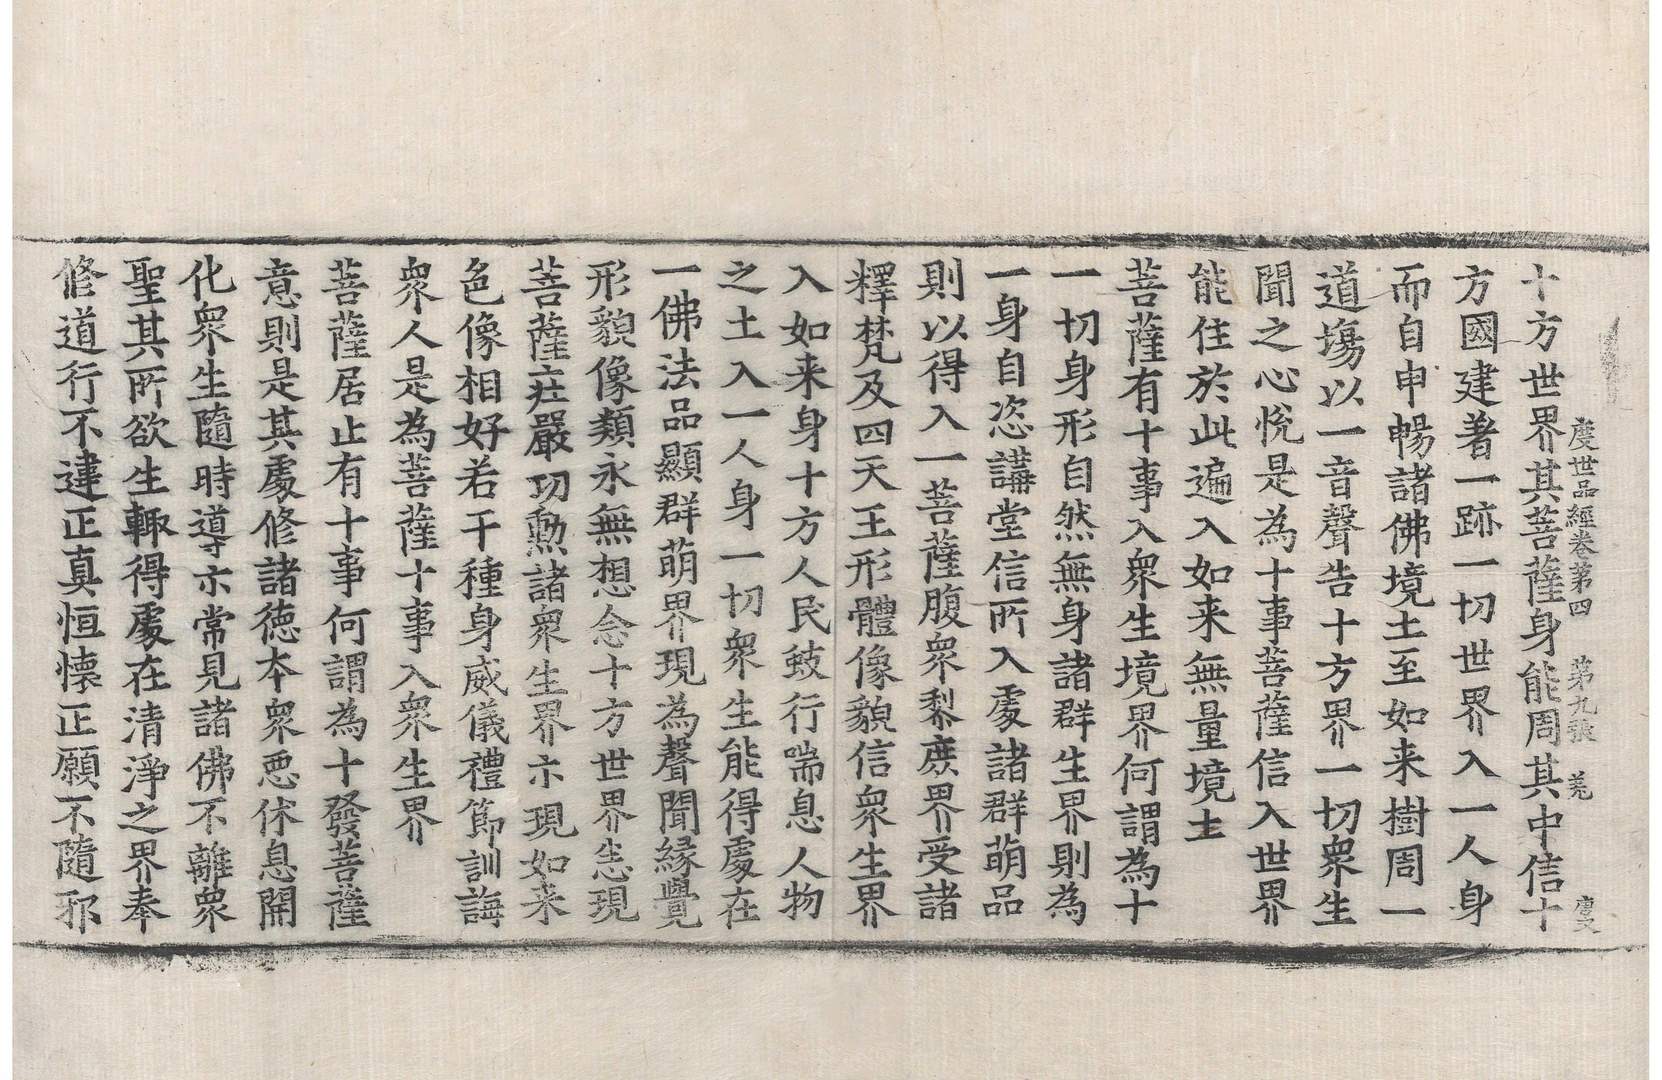 度世品經卷第四　第九張　羌　度文
十方世界其菩薩身能周其中信十
方國建著一跡一切世界入一人身
而自申暢諸佛境土至如来樹周一
道塲以一音聲告十方界一切衆生
聞之心悅是為十事菩薩信入世界
能住於此遍入如来無量境土
菩薩有十事入衆生境界何謂為十
一切身形自然無身諸群生界則為
一身自恣講堂信所入處諸群萌品
則以得入一菩薩腹衆黎庶界受諸
釋梵及四天王形體像貌信衆生界
入如来身十方人民蚑行喘息人物
之土入一人身一切衆生能得處在
一佛法品顯群萌界現為聲聞緣覺
形貌像類永無想念十方世界悉現
菩薩莊嚴功勲諸衆生界亦現如来
色像相好若干種身威儀禮節訓誨
衆人是為菩薩十事入衆生界
菩薩居止有十事何謂為十發菩薩
意則是其處修諸德本衆悪休息開
化衆生隨時導示常見諸佛不離衆
聖其所欲生輙得處在清淨之界奉
修道行不違正真恒懐正願不隨邪